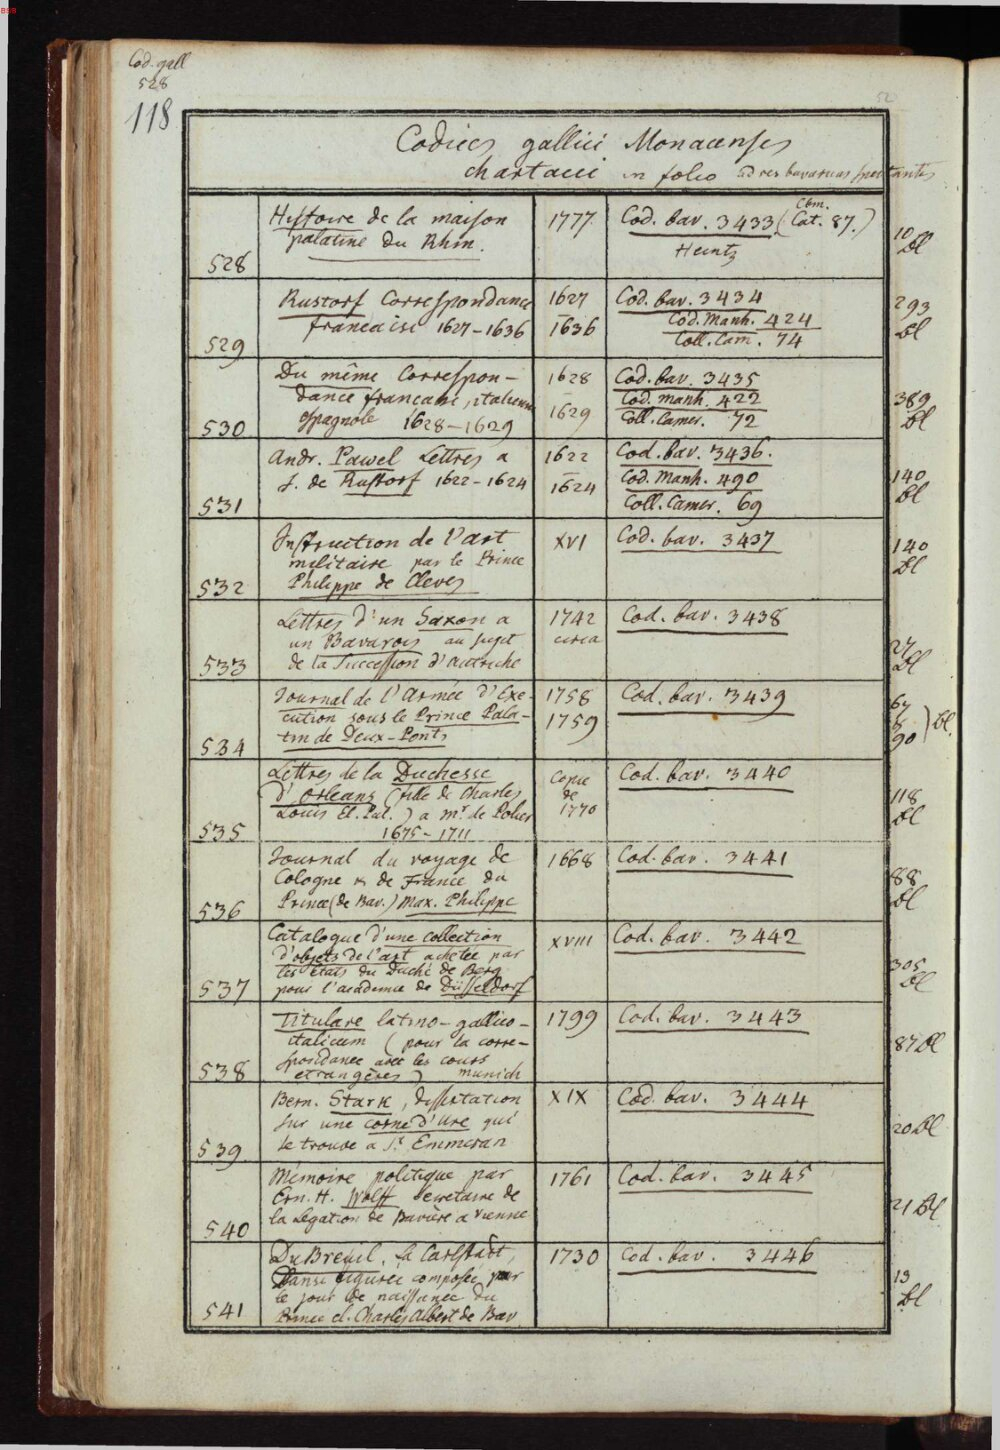 BSB
Cod. gall
528
118
52
Codices gallici Monacenses
chartacei in folio ad res bavaricas spectantes
528
Histoire de la maison
palatine du Rhin.
1777
Cbm.
Cod. bav. 3433 (Cat. 87.)
Heintz
10
Bl
529
Rustorf Correspondance
francaise 1627-1636
1627
-
1636
Cod. bav. 3434
Cod. Manh. 424
Coll. Cam. 74
293
Bl
530
Du même Correspon-
dance francaise, italienne
espagnole 1628-1629
1628
-
1629
Cod. bav. 3435
Cod. manh. 422
Coll. Camer. 72
389
Bl
531
Andr. Pawel Lettres a
J. de Rustorf 1622-1624
1622
-
1624
Cod. bav. 3436.
Cod. Manh. 490
Coll. Camer. 69
140
Bl
532
Instruction de l'art
militaire par le Prince
Philippe de Cleves
XVI
Cod. bav. 3437
140
Bl
533
Lettres d'un Saxon a
un Bavarois au sujet
de la Succession d'autriche
1742
circa
Cod. bav. 3438
27
Bl
534
Journal de l'Armée d'Exe-
cution sous le Prince Pala-
tin de Deux-Ponts
1758
1759
Cod. bav. 3439
67
&
90
) Bl.
535
Lettres de la Duchesse
d'Orleans (fille de Charles
Louis El. Pal.) a mr. de Polier
1675-1711
Copie
de
1770
Cod. bav. 3440
118
Bl
536
Journal du voyage de
Cologne & de France du
Prince (de Bav.) Max. Philippe
1668
Cod. bav. 3441
88
Bl
537
Catalogue d'une collection
d'objets de l'art achetée par
les états du Duché de Berg
pour l'academie de Düsseldorf
XVIII
Cod. bav. 3442
305
Bl
538
Titulare latino-gallico-
italicum (pour la corre-
spondance avec les cours
etrangères) munich
1799
Cod. bav. 3443
87 Bl
539
Bern. Stark, dissertation
sur une corne d'Ure qui
se trouve a St. Emmeran
XIX
Cod. bav. 3444
20 Bl
540
Mémoire politique par
Ern. H. Wolff Secretaire de
la Légation de Bavière a Vienne
1761
Cod. bav. 3445
21 Bl
541
Du Breuil, la Carlstadt,
Danse figurée composée pour
le jour de naissance du
Prince el. Charles Albert de Bav
1730
Cod. bav. 3446
13
Bl